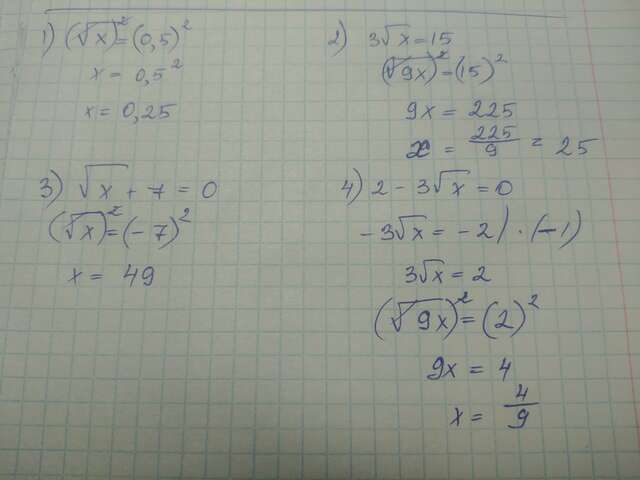 1) (√x)² = (0,5)²
x = 0,5²
x = 0,25
2) 3√x = 15
(√9x)² = (15)²
9x = 225
x = 225/9 = 25
3) √x + 7 = 0
(√x)² = (-7)²
x = 49
4) 2 - 3√x = 0
-3√x = -2 | · (-1)
3√x = 2
(√9x)² = (2)²
9x = 4
x = 4/9